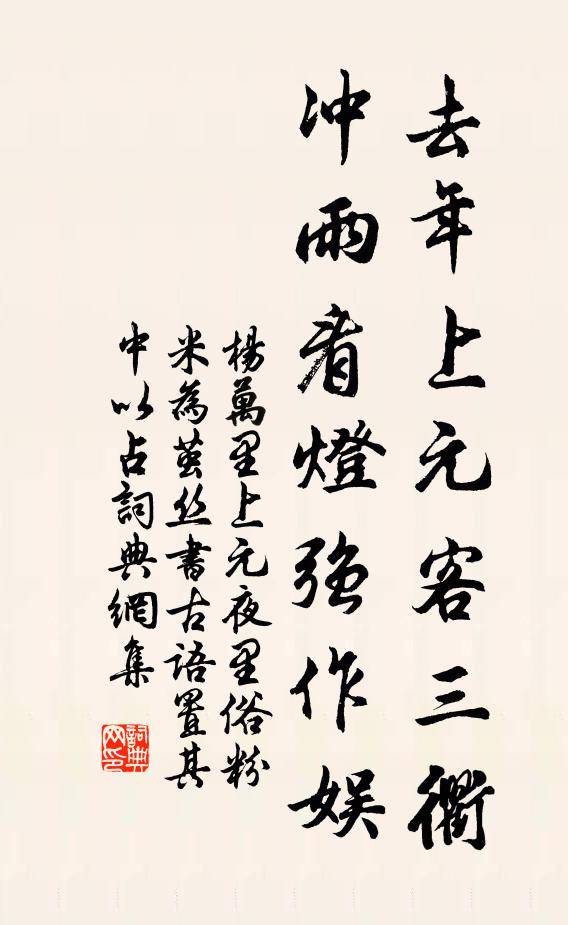 去年上元客三衢
冲雨看燈强作娱
楊萬里上元夜里俗粉
米為茧丝書古語置其
中以占詞典網集
詞典网印